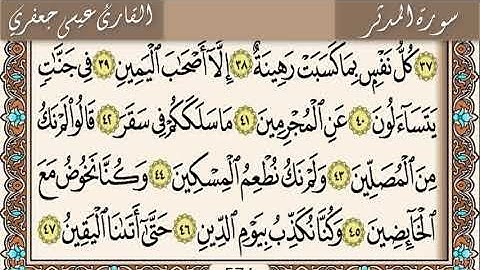 سورة المدثر
القارئ عيسى جعفري
٣٧ كُلُّ نَفْسٍ بِمَا كَسَبَتْ رَهِينَةٌ ٣٨ إِلَّا أَصْحَابَ الْيَمِينِ ٣٩ فِي جَنَّاتٍ
يَتَسَاءَلُونَ ٤٠ عَنِ الْمُجْرِمِينَ ٤١ مَا سَلَكَكُمْ فِي سَقَرَ ٤٢ قَالُوا لَمْ نَكُ
مِنَ الْمُصَلِّينَ ٤٣ وَلَمْ نَكُ نُطْعِمُ الْمِسْكِينَ ٤٤ وَكُنَّا نَخُوضُ مَعَ
الْخَائِضِينَ ٤٥ وَكُنَّا نُكَذِّبُ بِيَوْمِ الدِّينِ ٤٦ حَتَّى أَتَانَا الْيَقِينُ ٤٧